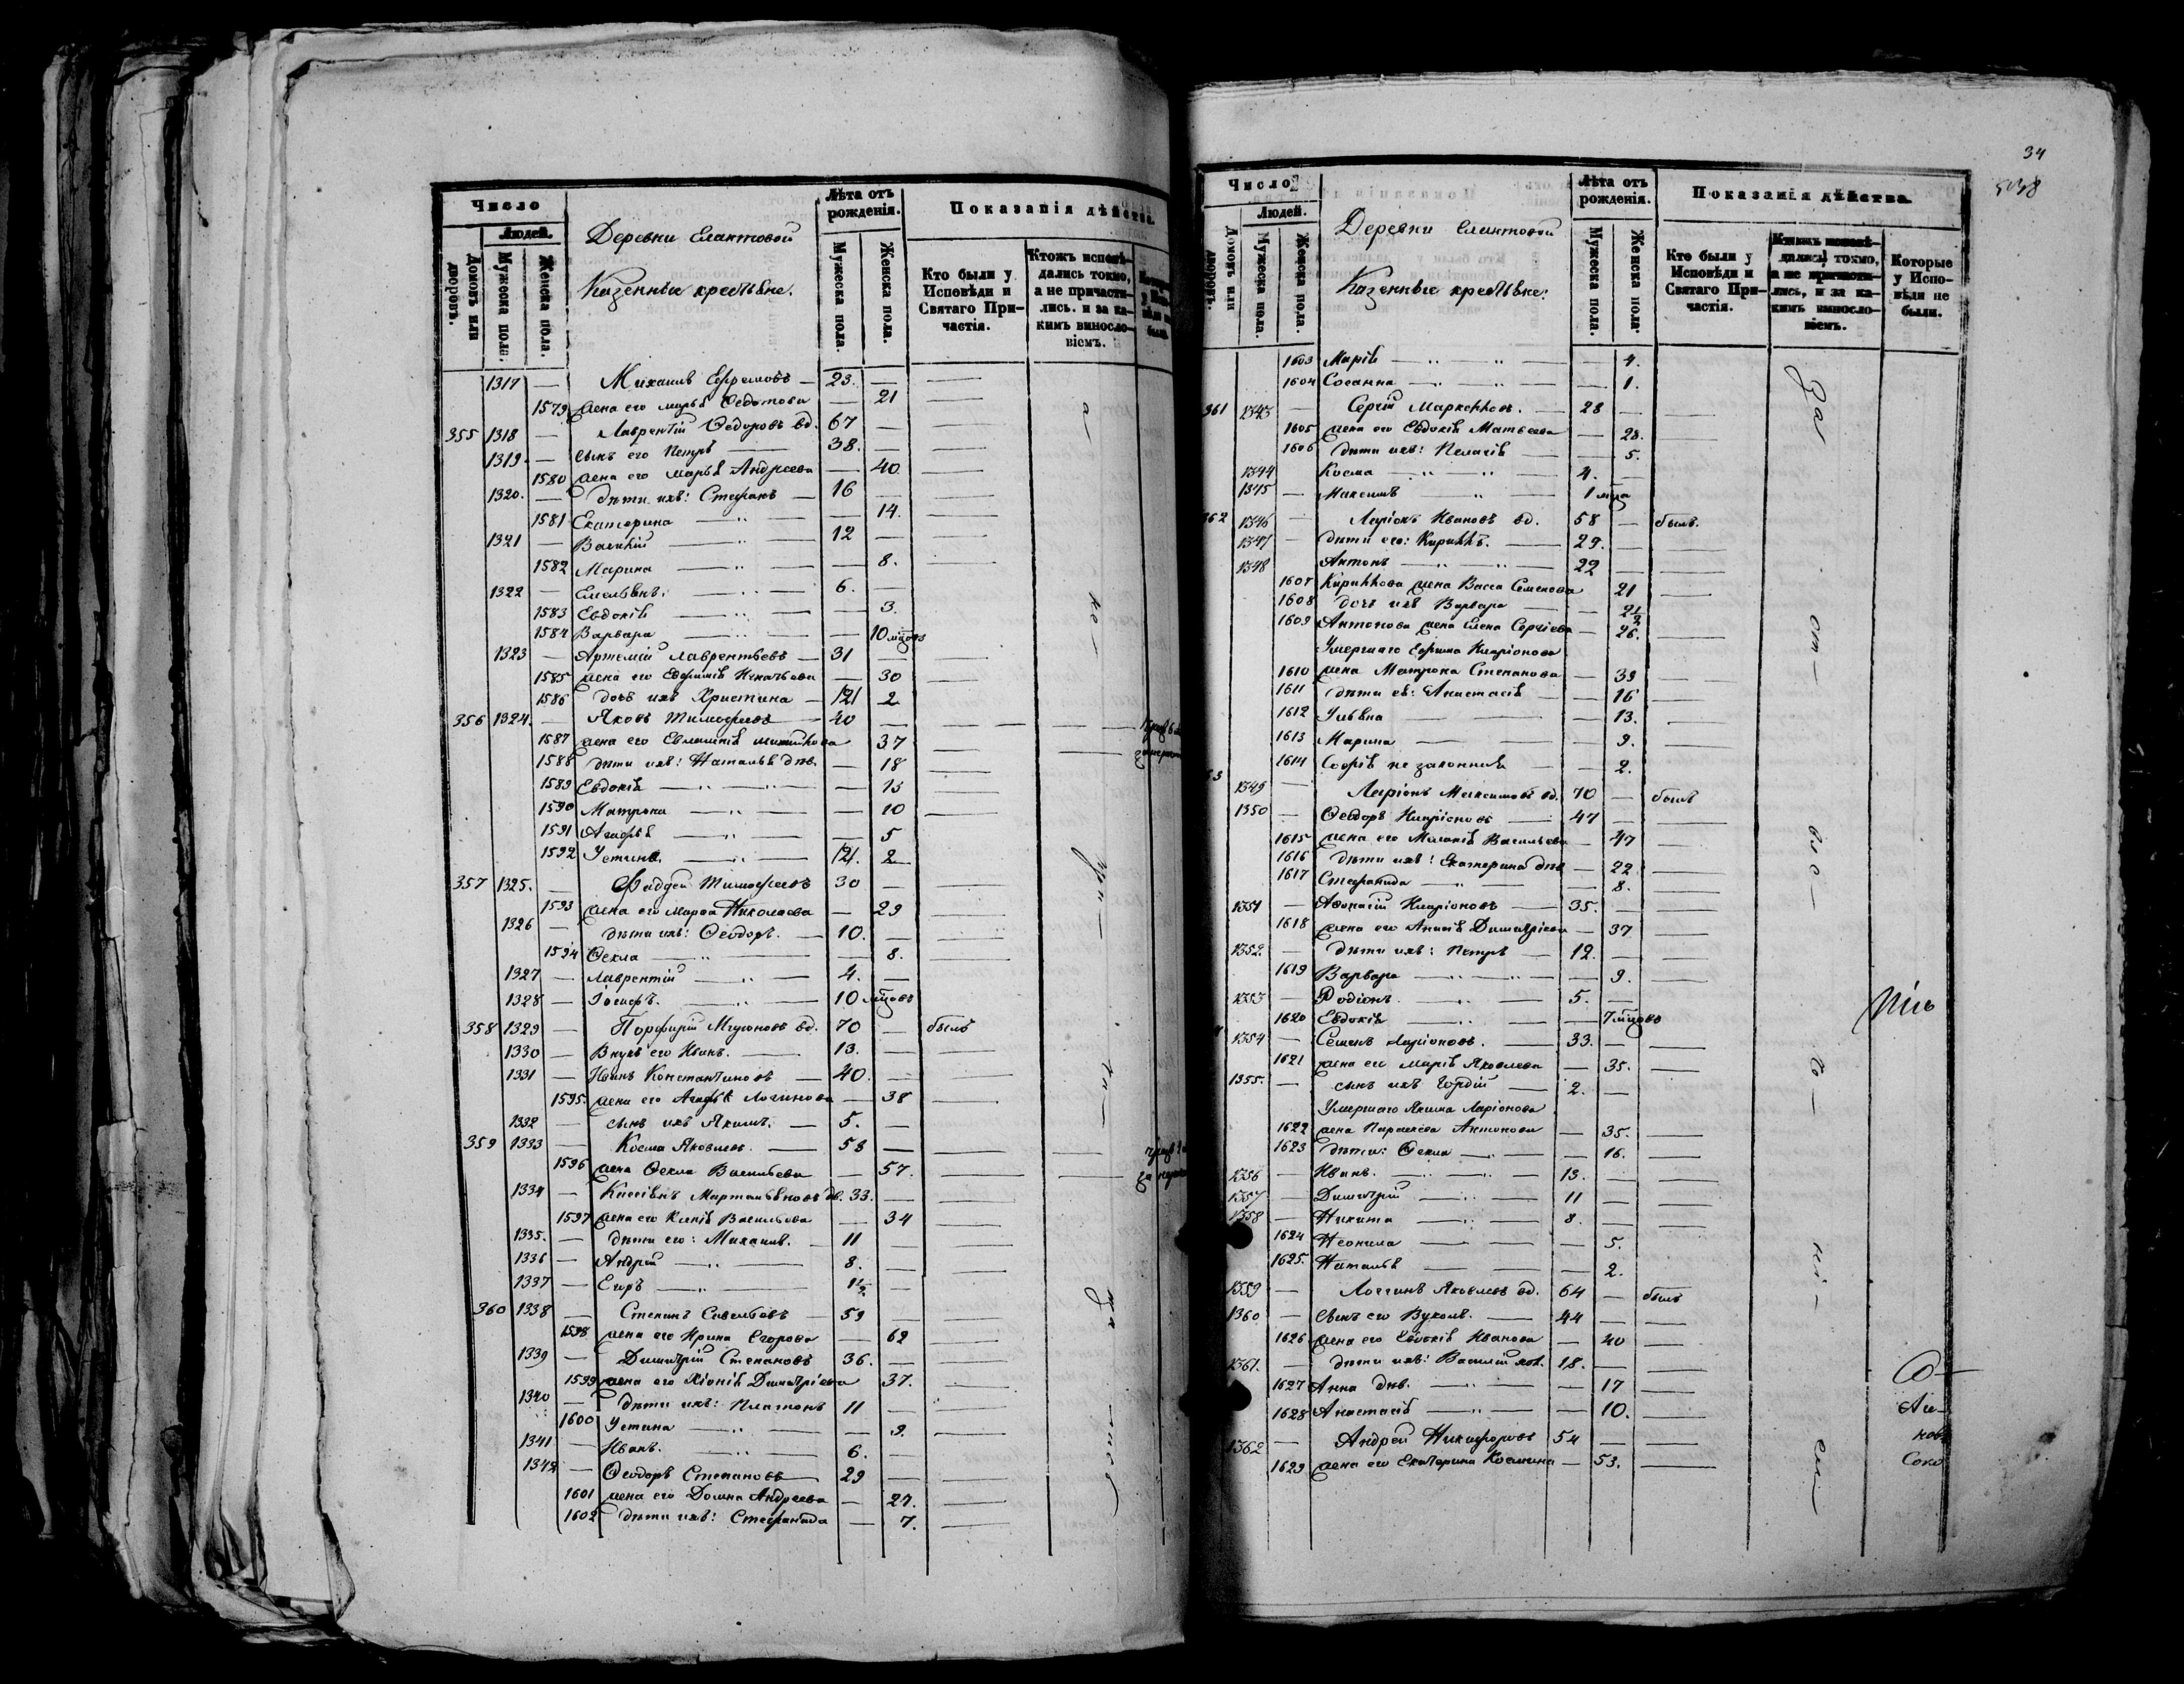 Число
Людей.
Домовъ или дворовъ.
Мужеска пола.
Женска пола.
Деревни Елантовой
Казенные крестьяне.
Лѣта отъ рожденія.
Мужеска пола.
Женска пола.
Показанія дѣйства.
Кто были у Исповѣди и Святаго Причастія.
Ктожъ исповѣдались токмо, а не причастились. и за какимъ винословіемъ.
1317 — Михаилъ Ефремовъ — 23. —
1579 жена его Марья Федотова — 21
355 1318 — Лаврентій Ѳедоровъ вд. 67 —
1319. — сынъ его Петръ — 38. —
1580 жена его Марья Андреева — 40.
1320. — дѣти ихъ: Стефанъ — 16 —
1581 Екатерина — 14.
1321 — Василій — 12 —
1582 Марина — 8.
1322 — Емельянъ. — 6. —
1583 Евдокія — 3.
1584 Варвара — 10 мцовъ
1323 — Артемій Лаврентьевъ — 31 —
1585 жена его Евфимія Игнатьева — 30
1586 дочь ихъ Христина — 2
356 1324. — Яковъ Тимофеевъ — 40 —
1587 жена его Евлампія 37
1588 дѣти ихъ: Наталья дѣв. — 18
1589 Евдокія — 15
1590 Матрона — 10
1591 Агафья — 5
1592 Устина — 2
357 1325. — Фаддей Тимофеевъ 30 —
1593 жена его Марфа Николаева — 29
1326 — дѣти ихъ: Ѳеодоръ. — 10. —
1594 Ѳекла — 8.
1327 — Лаврентій — 4. —
1328 — Іосифъ. — 10 мцовъ
358 1329 — Порфирій вд. 70 — былъ
1330 — Внукъ его Иванъ. — 13. —
1331 — Иванъ Константиновъ — 40. —
1595. жена его Агафья Логинова — 38
1332 — сынъ ихъ Якимъ. — 5. —
359 1333 — Косма Яковлевъ. — 58 —
1596 жена Ѳекла Васильева — 57.
1334 — Касіянъ Мартемьяновъ 33. —
1597 жена его Ксенія Васильева — 34
1335. — дѣти его: Михаилъ. — 11 —
1336 — Андрей — 8. —
1337 — Егоръ — 1½ —
360 1338 — Степанъ Савельевъ 59 —
1598 жена его Ирина Егорова — 62
1339 — Димитрій Степановъ 36. —
1599 жена его Хіонія Димитріева 37.
1340 — дѣти ихъ: Платонъ 11 —
1600 Устина — 9.
1341 — Иванъ. — 6. —
1342 — Ѳеодоръ Степановъ — 29 —
1601 жена его Домна Андреева — 27.
1602 дѣти ихъ: Стефанида — 7.
а — не — при — ча — ща — лись
34
Число
Людей.
Домовъ или дворовъ.
Мужеска пола.
Женска пола.
Деревни Елантовой
Казенные крестьяне:
Лѣта отъ рожденія.
Мужеска пола.
Женска пола.
Показанія дѣйства.
Кто были у Исповѣди и Святаго Причастія.
Ктожъ исповѣдались токмо, а не причастились, и за какимъ винословіемъ.
Которые у Исповѣди не были.
1603 Марія — 4.
1604 Сосанна — 1.
361 1343 — Сергій Маркеловъ. — 28 —
1605 жена его Евдокія Матвеева — 28.
1606 дѣти ихъ: Пелагія — 5.
1344 Косма 4. —
1345 — Максимъ 1 мца
362 1346 — Ларіонъ Ивановъ вд. 58 — былъ.
1347 — дѣти его: Кириллъ. — 29. —
1348 Антонъ — 22 —
1607 Кириллова жена Васса Семенова 21
1608 дочь ихъ Варвара — 2½
1609 Антонова жена Елена Сергіева — 26.
Умершаго Ефима Иларіонова
1610 жена Матрона Степанова — 39
1611 дѣти ея: Анастасія — 16
1612 Ульяна — 13.
1613 Марина — 9.
1614 Софія не законная — 2.
1349 — Ларіонъ Максимовъ вд. 70 — былъ
1350 — Ѳеодоръ Иларіоновъ — 47 —
1615 жена его Меланія Васильева — 47
1616 дѣти ихъ: Екатерина дѣв. — 22
1617 Стефанида — 8.
1351 — Аѳонасій Иларіоновъ — 35. —
1618 жена его Анисія Димитріева — 37
1352 — дѣти ихъ: Петръ — 12. —
1619 Варвара — 9.
1353 — Родіонъ. — 5. —
1620 Евдокія — 7 мцовъ
1354 — Семенъ Ларіоновъ. — 33. —
1621 жена его Марія Яковлева — 35.
1355. — сынъ ихъ Гордій — 2. —
Умершаго Якима Ларіонова
1622 жена Параскева Антонова — 35.
1623 дѣти: Ѳекла — 16.
1356 — Иванъ. — 13. —
1357 — Димитрій — 11 —
1358 — Никита — 8. —
1624 Неонила — 5.
1625. Наталья — 2.
1359 — Логгинъ Яковлевъ вд. 64 — былъ
1360 — сынъ его Вуколъ. — 44 —
1626 жена его Евдокія Иванова — 40
1361. — дѣти ихъ: Василій хол. 18. —
1627 Анна дѣв. — 17
1628 Анастасія — 10.
1362 — Андрей Никифоровъ 54 —
1629 жена его Екатерина Космина — 53.